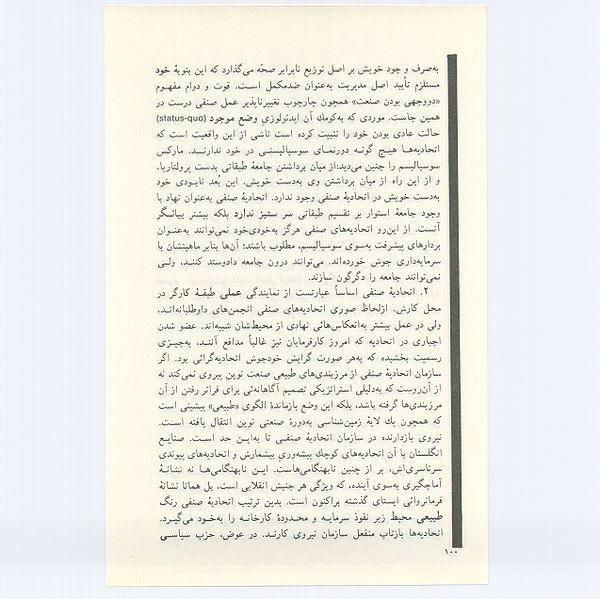 به‌صرف و جود خویش بر اصل توزیع نابرابر صحّه می‌گذارد که این بنوبهٔ خود
مستلزم تأیید اصل مدیریت به‌عنوان ضدمکمل است. قوت و دوام مفهوم
«دووجهی بودن صنعت» همچون چارچوب تغییرناپذیر عمل صنفی درست در
همین جاست. موردی که به‌کومك آن ایدئولوژیِ وضع موجود (status-quo)
حالت عادی بودن خود را تثبیت کرده است ناشی از این واقعیت است که
اتحادیه‌ها هیچ گونه دورنمای سوسیالیستی در خود ندارند. مارکس
سوسیالیسم را چنین می‌دید:از میان برداشتن جامعهٔ طبقاتی بدست پرولتاریا،
و از این راه از میان برداشتن وی به‌دست خویش. این بُعد نابودی خود
به‌دست خویش در اتحادیهٔ صنفی وجود ندارد. اتحادیهٔ صنفی به‌عنوان نهاد با
وجود جامعهٔ استوار بر تقسیم طبقاتی سر ستیز ندارد بلکه بیشتر بیانگر
آنست. از این‌رو اتحادیه‌های صنفی هرگز به‌خودی‌خود نمی‌توانند به‌عنوان
بردارهای پیشرفت به‌سوی سوسیالیسم، مطلوب باشند: آن‌ها بنابر ماهیتشان با
سرمایه‌داری جوش خورده‌اند. می‌توانند درون جامعه دادوستد کنند، ولی
نمی‌توانند جامعه را دگرگون سازند.
۲. اتحادیهٔ صنفی اساساً عبارتست از نمایندگی عملی طبقهٔ کارگر در
محل کارش. ازلحاظ صوری اتحادیه‌های صنفی انجمن‌های داوطلبانه‌اند،
ولی در عمل بیشتر به‌انعکاس‌هائی نهادی از محیط‌شان شبیه‌اند. عضو شدن
اجباری در اتحادیه که امروز کارفرمایان نیز غالباً مدافع آنند، به‌چیزی
رسمیت بخشیده که به‌هر صورت گرایش خودجوش اتحادیه‌گرائی بود. اگر
سازمان اتحادیهٔ صنفی از مرزبندی‌های طبیعی صنعت نوین پیروی نمی‌کند نه
از آن‌روست که به‌دلیلی استراتژیکی تصمیم آگاهانه‌ئی برای فراتر رفتن از آن
مرزبندی‌ها گرفته باشد، بلکه این وضع بازماندهٔ الگوی «طبیعی» پیشینی است
که همچون یك لایهٔ زمین‌شناسی به‌دورهٔ صنعتی نوین انتقال یافته است.
نیروی بازدارنده در سازمان اتحادیهٔ صنفی تا به‌این حد است. صنایع
انگلستان با آن اتحادیه‌های کوچك پیشه‌وری بیشمارش و اتحادیه‌های پیوندی
سرتاسری‌اش، پر از چنین نابهنگامی‌هاست. این نابهنگامی‌ها نه نشانهٔ
آماجگیری به‌سوی آینده، که ویژگی هر جنبش انقلابی است، بل همانا نشانهٔ
فرمانروائی ایستای گذشته براکنون است. بدین ترتیب اتحادیهٔ صنفی رنگ
طبیعی محیط زیر نفوذ سرمایه و محدودهٔ کارخانه را به‌خود می‌گیرد.
اتحادیه‌ها بازتاب منفعل سازمان نیروی کارند. در عوض، حزب سیاسی
۱۰۰